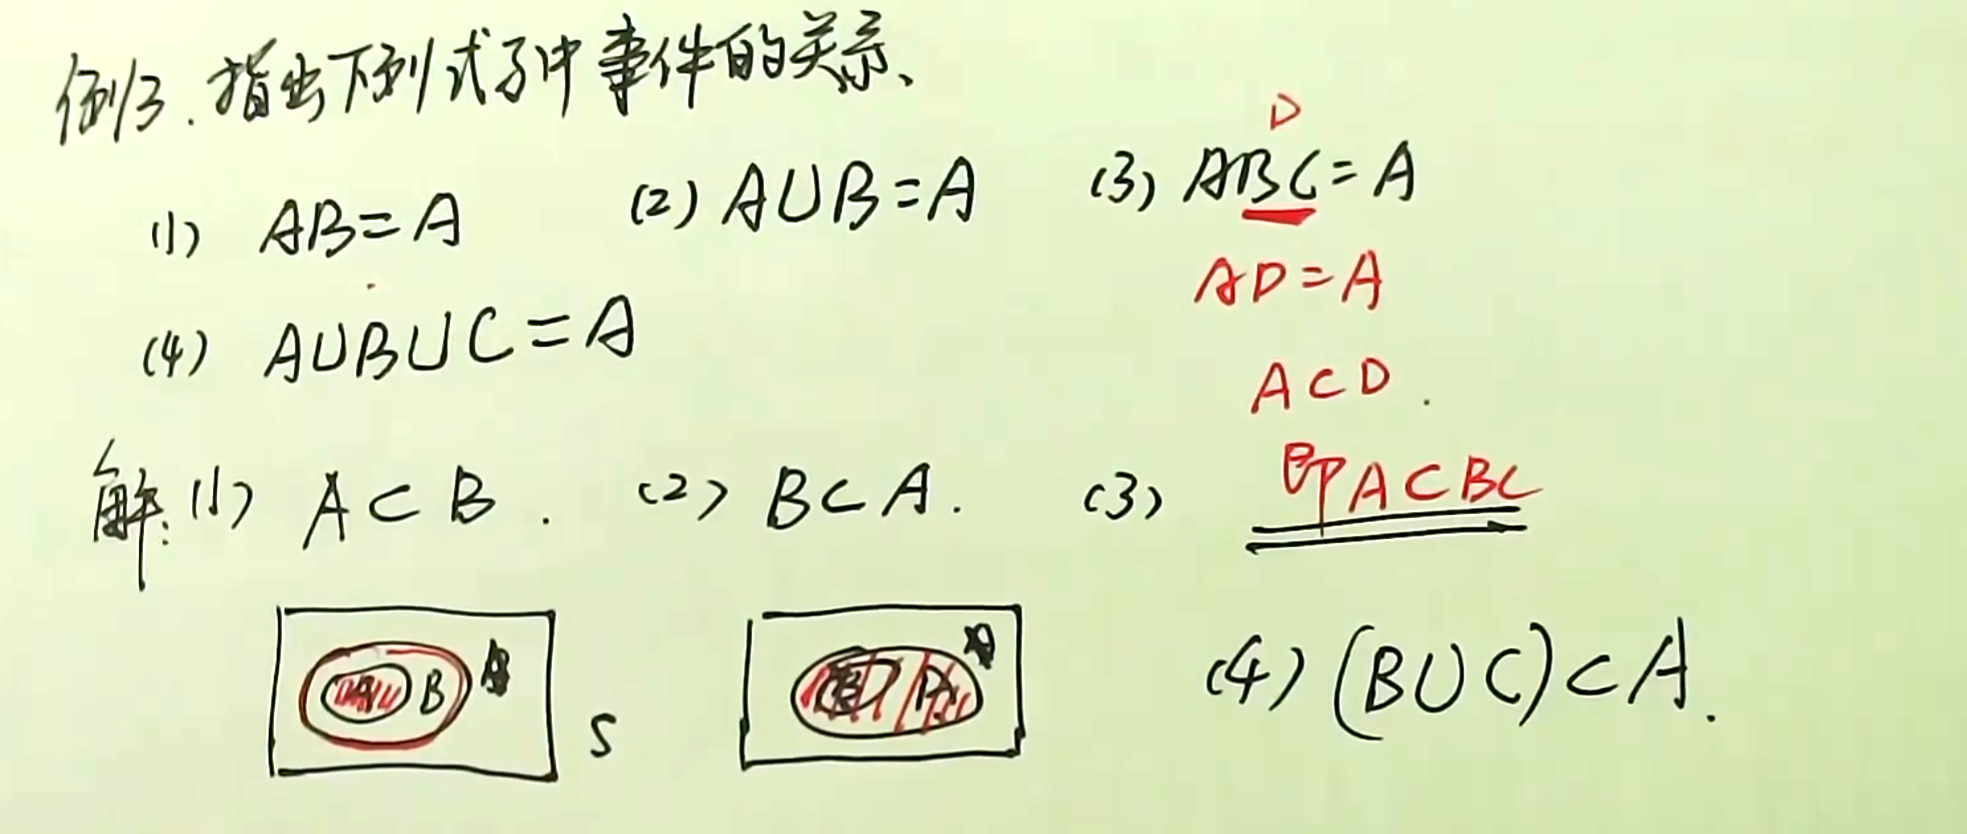 例3.指出下列式子中事件的关系、
(1) AB=A (2) A∪B=A (3) ABC=A
D
AD=A
(4) A∪B∪C=A
A⊂D.
解:(1) A⊂B. (2) B⊂A. (3) 即A⊂BC
A B
S
B A
(4) (B∪C)⊂A.